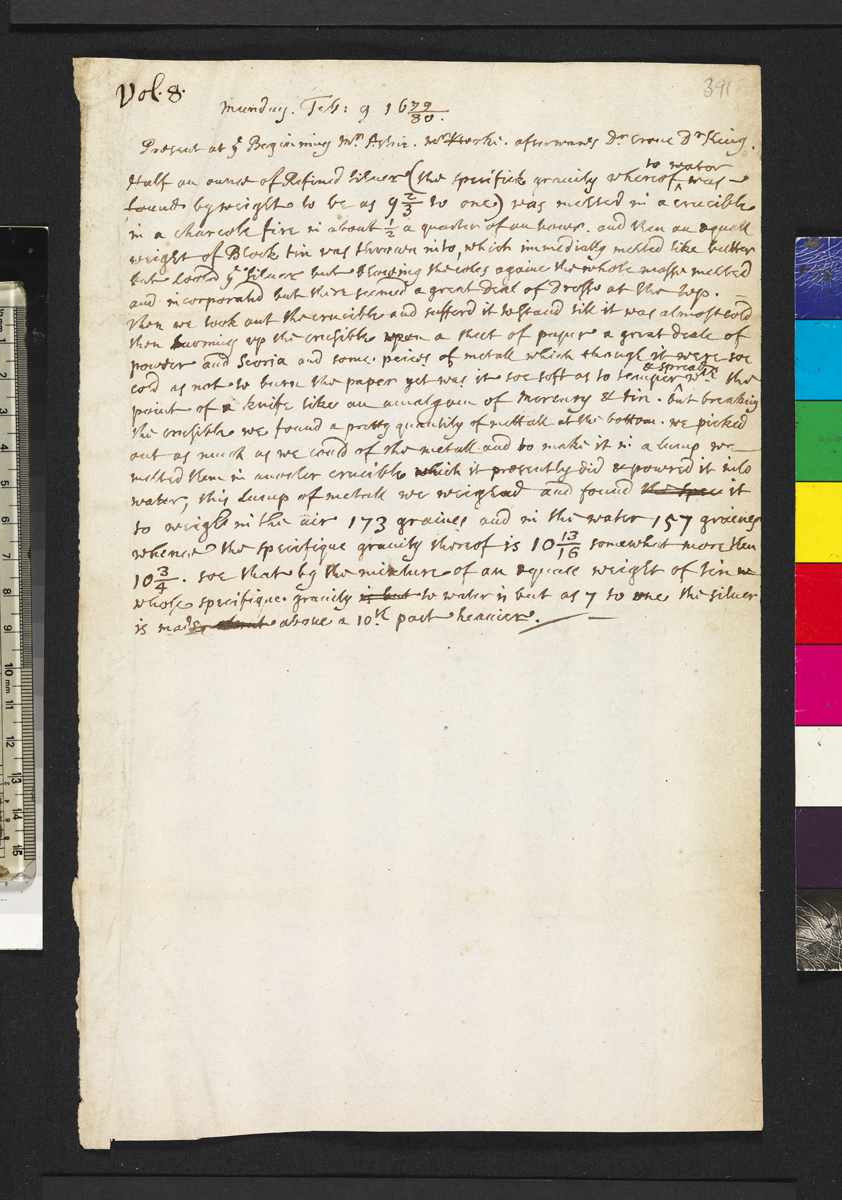 Vol. 8.
391
Munday. Feb: 9 16 79/80.
Present at ye Beginning Mr. Mr Hooke. afterwards Dr Croue Dr King.
to water
Half an ounce of Refined silver (the specifick gravity whereof ^ was
found by weight to be as 9 2/3 to one) was melted in a crucible
in a charcole fire in about 1/2 a quarter of an hower. and then an equall
weight of Block tin was thrown into, which immediatly melted like butter
but coold ye silver but blowing the coles againe the whole masse melted
and incorporated but there seemed a great deal of Drosse at the top.
then we took out the crucible and sufferd it to stand till it was almost cold
then turning up the crusible upon a sheet of paper a great deale of
powder and Scoria and some peices of metall which though it were soe
& spread
cold as not to burn the paper yet was it soe soft as to temper ^ wth the
point of a knife like an amalgam of mercury & tin. but breaking
the crusible we found a pretty quantity of mettall at the bottom. we picked
out as much as we could of the metall and to make it in a lump we
melted them in another crucible which it presently did & powred it into
water, this lump of metall we weighed and found the spec it
to weigh in the air 173 graines and in the water 157 graines
whence the specifique gravity thereof is 10 13/16 somewhat more then
10 3/4. soe that by the mixture of an equall weight of tin
whose specifique gravity is but to water is but as 7 to one the silver
is made above a 10th part heavier.